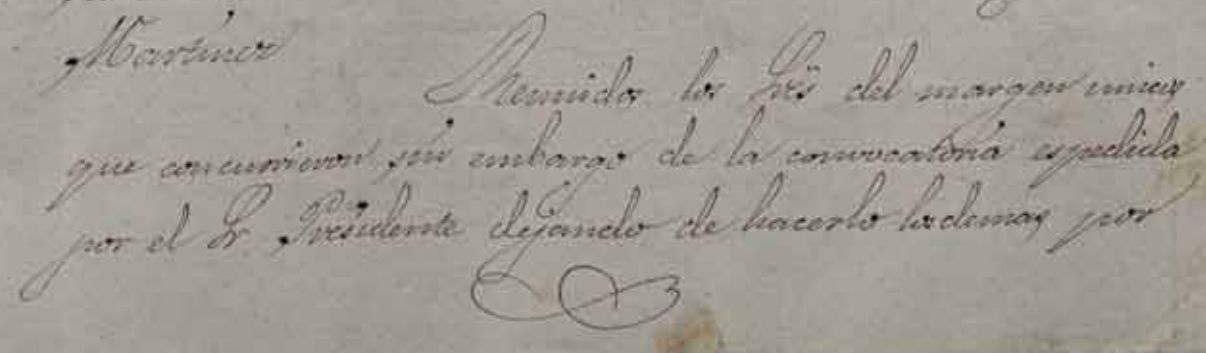 Martinez
Reunidos los Sres del margen unicos
que concurrieron sin embargo de la convocatoria espedida
por el Sr. Presidente dejando de hacerlo los demas por